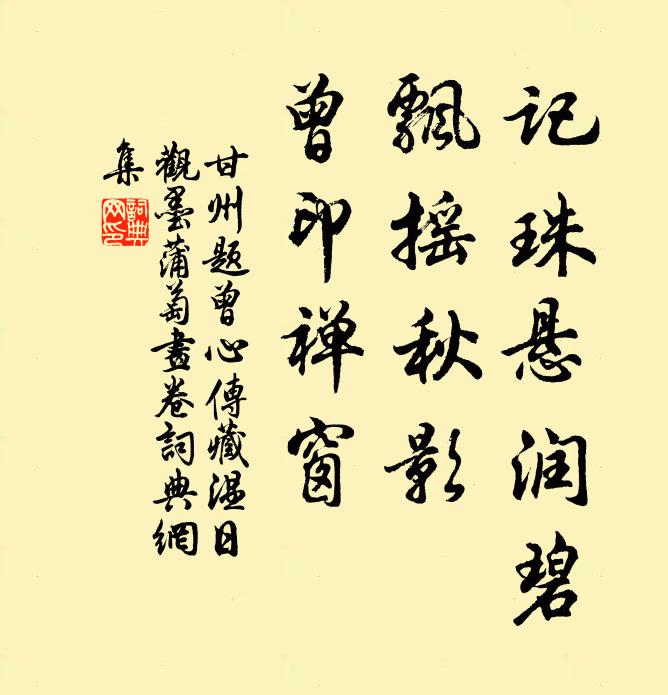 记珠悬润碧
飘摇秋影
曾印禅窗
甘州题曾心傳藏温日
觀墨蒲萄畫卷詞典網
集
詞典
网印